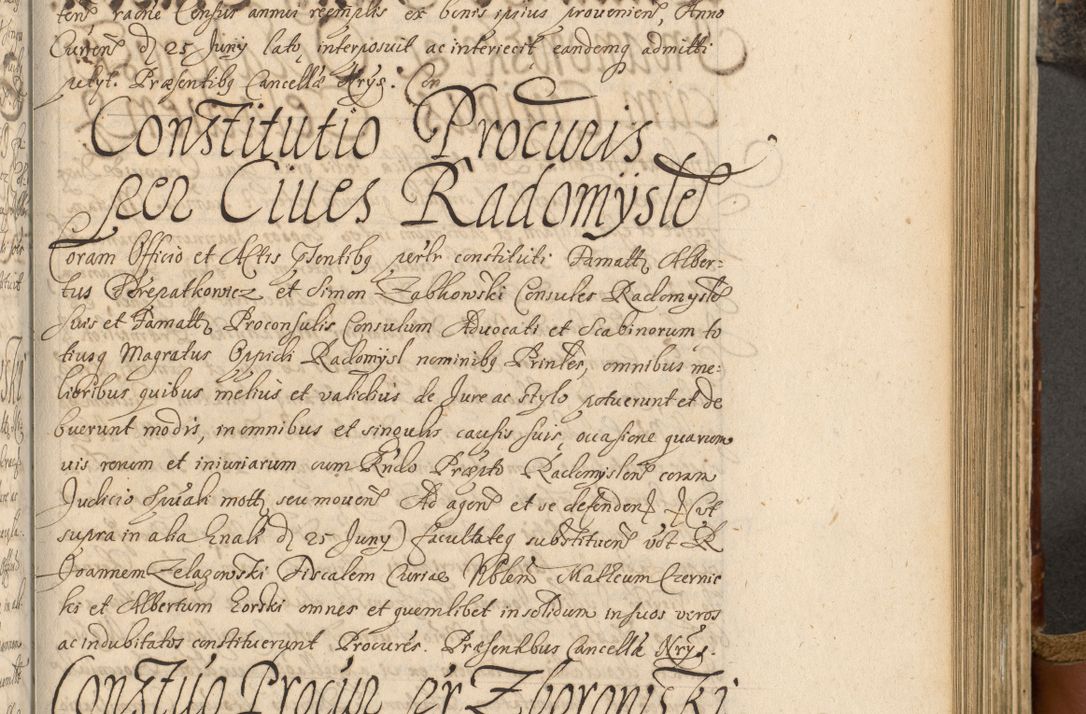 ratione Census annui reemptis ex bonis ipsius provenien, Anno
Curren d 25 Juny lato interposuit ac interiecit eandemq admitti
petyt. Præsentibq Cancellæ Nrys.
Constitutio Procuris
per Ciues Radomyslē
Coram Officio et Actis psentibq perlr constituti Famatt Alber-
tus et Simon Zabkowski Consules Radomyslē
suis et Famatt Proconsulis Consulum Advocati et Scabinorum to
tiusq Magratus Oppidi Radomysl nominibq Printes, omnibus me-
lioribus quibus melius et validius de Jure ac stylo potuerunt et de
buerunt modis, in omnibus et singulis causis suis, occasione quarum
uis rerum et iniuriarum cum Rndo Præpto Radomyslen coram
Judicio mott seu moven Ad agen et se defenden (ut
supra in alia d 25 Juny) facultateq substituen vot R
Joannem Zelazowski Fiscalem Curiæ Matheum Czernic
ki et Albertum Gorski omnes et quemlibet in solidum in suos veros
ac indubitatos constituerunt Procures. Præsentibus Cancellæ Nrys.
Constitutio Procur per Zborowski